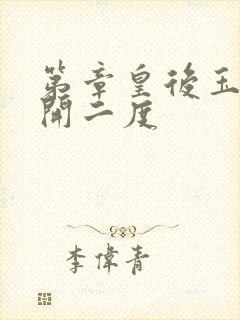 第章皇後玉
開二度
李偉青